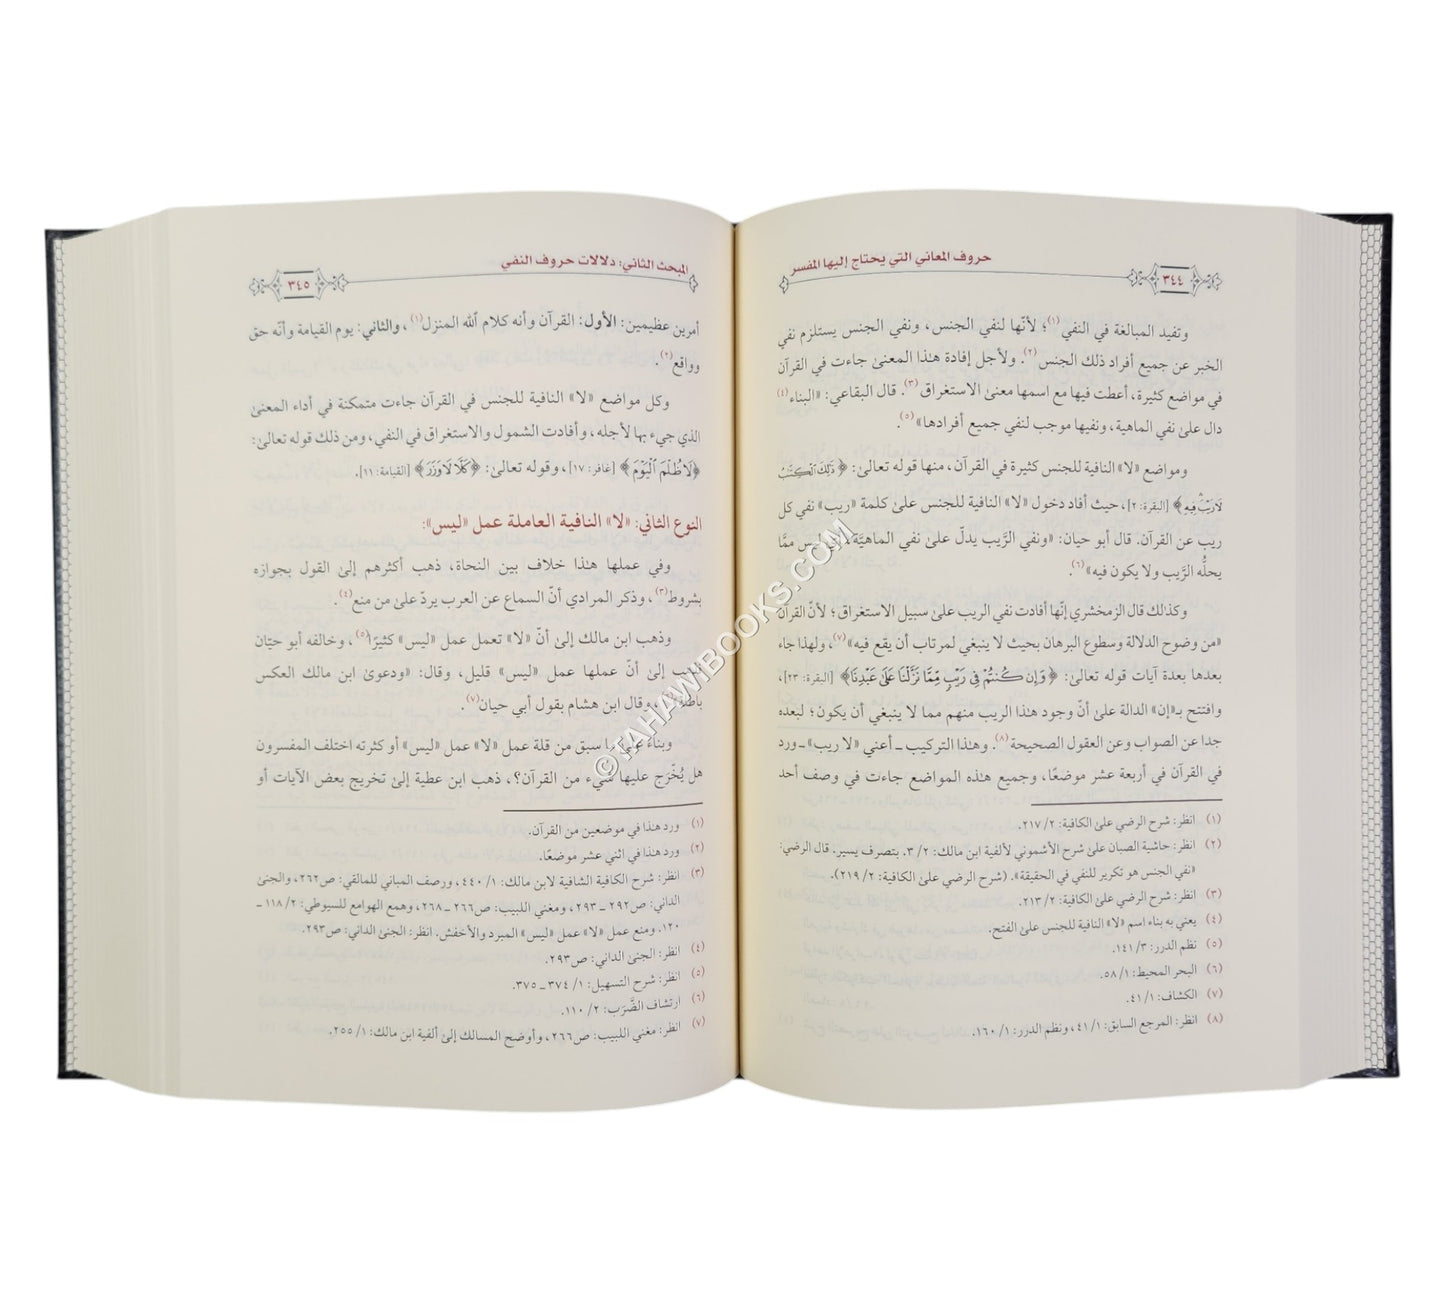 حروف المعاني التي يحتاج إليها المفسر
٣٤٤
وتفيد المبالغة في النفي(١)؛ لأنّها لنفي الجنس، ونفي الجنس يستلزم نفي
الخبر عن جميع أفراد ذلك الجنس(٢). ولأجل إفادة هذا المعنىٰ جاءت في القرآن
في مواضع كثيرة، أعطت فيها مع اسمها معنىٰ الاستغراق(٣). قال البقاعي: «البناء(٤)
دال علىٰ نفي الماهية، ونفيها موجب لنفي جميع أفرادها»(٥).
ومواضع «لا» النافية للجنس كثيرة في القرآن، منها قوله تعالىٰ: ﴿ذَٰلِكَ ٱلْكِتَٰبُ
لَا رَيْبَ ۛ فِيهِ﴾ [البقرة: ٢]، حيث أفاد دخول «لا» النافية للجنس علىٰ كلمة «ريب» نفي كل
ريب عن القرآن. قال أبو حيان: «ونفي الرَّيب يدلّ علىٰ نفي الماهيَّة، أي ليس ممَّا
يحلُّه الرَّيب ولا يكون فيه»(٦).
وكذلك قال الزمخشري إنّها أفادت نفي الريب علىٰ سبيل الاستغراق؛ لأنّ القرآن
«من وضوح الدلالة وسطوع البرهان بحيث لا ينبغي لمرتاب أن يقع فيه»(٧)، ولهذا جاء
بعدها بعدة آيات قوله تعالىٰ: ﴿وَإِن كُنتُمْ فِي رَيْبٍ مِّمَّا نَزَّلْنَا عَلَىٰ عَبْدِنَا﴾ [البقرة: ٢٣]،
وافتتح بـ«إن» الدالة علىٰ أنّ وجود هذا الريب منهم مما لا ينبغي أن يكون؛ لبعده
جدا عن الصواب وعن العقول الصحيحة(٨). وهذا التركيب ـ أعني «لا ريب» ـ ورد
في القرآن في أربعة عشر موضعًا، وجميع هذه المواضع جاءت في وصف أحد
(١) انظر: شرح الرضي علىٰ الكافية: ٢/ ٢١٧.
(٢) انظر: حاشية الصبان علىٰ شرح الأشموني لألفية ابن مالك: ٢/ ٣. بتصرف يسير. قال الرضي:
«نفي الجنس هو تكرير للنفي في الحقيقة». (شرح الرضي علىٰ الكافية: ٢/ ٢١٩).
(٣) انظر: شرح الرضي علىٰ الكافية: ٢/ ٢١٣.
(٤) يعني به بناء اسم «لا» النافية للجنس علىٰ الفتح.
(٥) نظم الدرر: ٣/ ١٤١.
(٦) البحر المحيط: ١/ ٥٨.
(٧) الكشاف: ١/ ٤١.
(٨) انظر: المرجع السابق: ١/ ٤١، ونظم الدرر: ١/ ١٦٠.
المبحث الثاني: دلالات حروف النفي
٣٤٥
أمرين عظيمين: الأول: القرآن وأنه كلام الله المنزل(١)، والثاني: يوم القيامة وأنّه حق
وواقع(٢).
وكل مواضع «لا» النافية للجنس في القرآن جاءت متمكنة في أداء المعنىٰ
الذي جيء بها لأجله، وأفادت الشمول والاستغراق في النفي، ومن ذلك قوله تعالىٰ:
﴿لَا ظُلْمَ ٱلْيَوْمَ﴾ [غافر: ١٧]، وقوله تعالىٰ: ﴿كَلَّا لَا وَزَرَ﴾ [القيامة: ١١].
النوع الثاني: «لا» النافية العاملة عمل «ليس»:
وفي عملها هذا خلاف بين النحاة، ذهب أكثرهم إلىٰ القول بجوازه
بشروط(٣)، وذكر المرادي أنّ السماع عن العرب يردّ علىٰ من منع(٤).
وذهب ابن مالك إلىٰ أنّ «لا» تعمل عمل «ليس» كثيرًا(٥)، وخالفه أبو حيّان
إلىٰ أنّ عملها عمل «ليس» قليل، وقال: «ودعوىٰ ابن مالك العكس
، وقال ابن هشام بقول أبي حيان(٧).
وبناءً علىٰ ما سبق من قلة عمل «لا» عمل «ليس» أو كثرته اختلف المفسرون
هل يُخّرَج عليها شيء من القرآن؟، ذهب ابن عطية إلىٰ تخريج بعض الآيات أو
(١) ورد هذا في موضعين من القرآن.
(٢) ورد هذا في اثني عشر موضعًا.
(٣) انظر: شرح الكافية الشافية لابن مالك: ١/ ٤٤٠، ورصف المباني للمالقي: ص٢٦٢، والجنىٰ
الداني: ص٢٩٢ ـ ٢٩٣، ومغني اللبيب: ص٢٦٦ ـ ٢٦٨، وهمع الهوامع للسيوطي: ٢/ ١١٨ ـ
١٢٠. ومنع عمل «لا» عمل «ليس» المبرد والأخفش. انظر: الجنىٰ الداني: ص٢٩٣.
(٤) انظر: الجنىٰ الداني: ص٢٩٣.
(٥) انظر: شرح التسهيل: ١/ ٣٧٤ ـ ٣٧٥.
(٦) ارتشاف الضَّرَب: ٢/ ١١٠.
(٧) انظر: مغني اللبيب: ص٢٦٦، وأوضح المسالك إلىٰ ألفية ابن مالك: ١/ ٢٥٥.
©TAHAWIBOOKS.COM